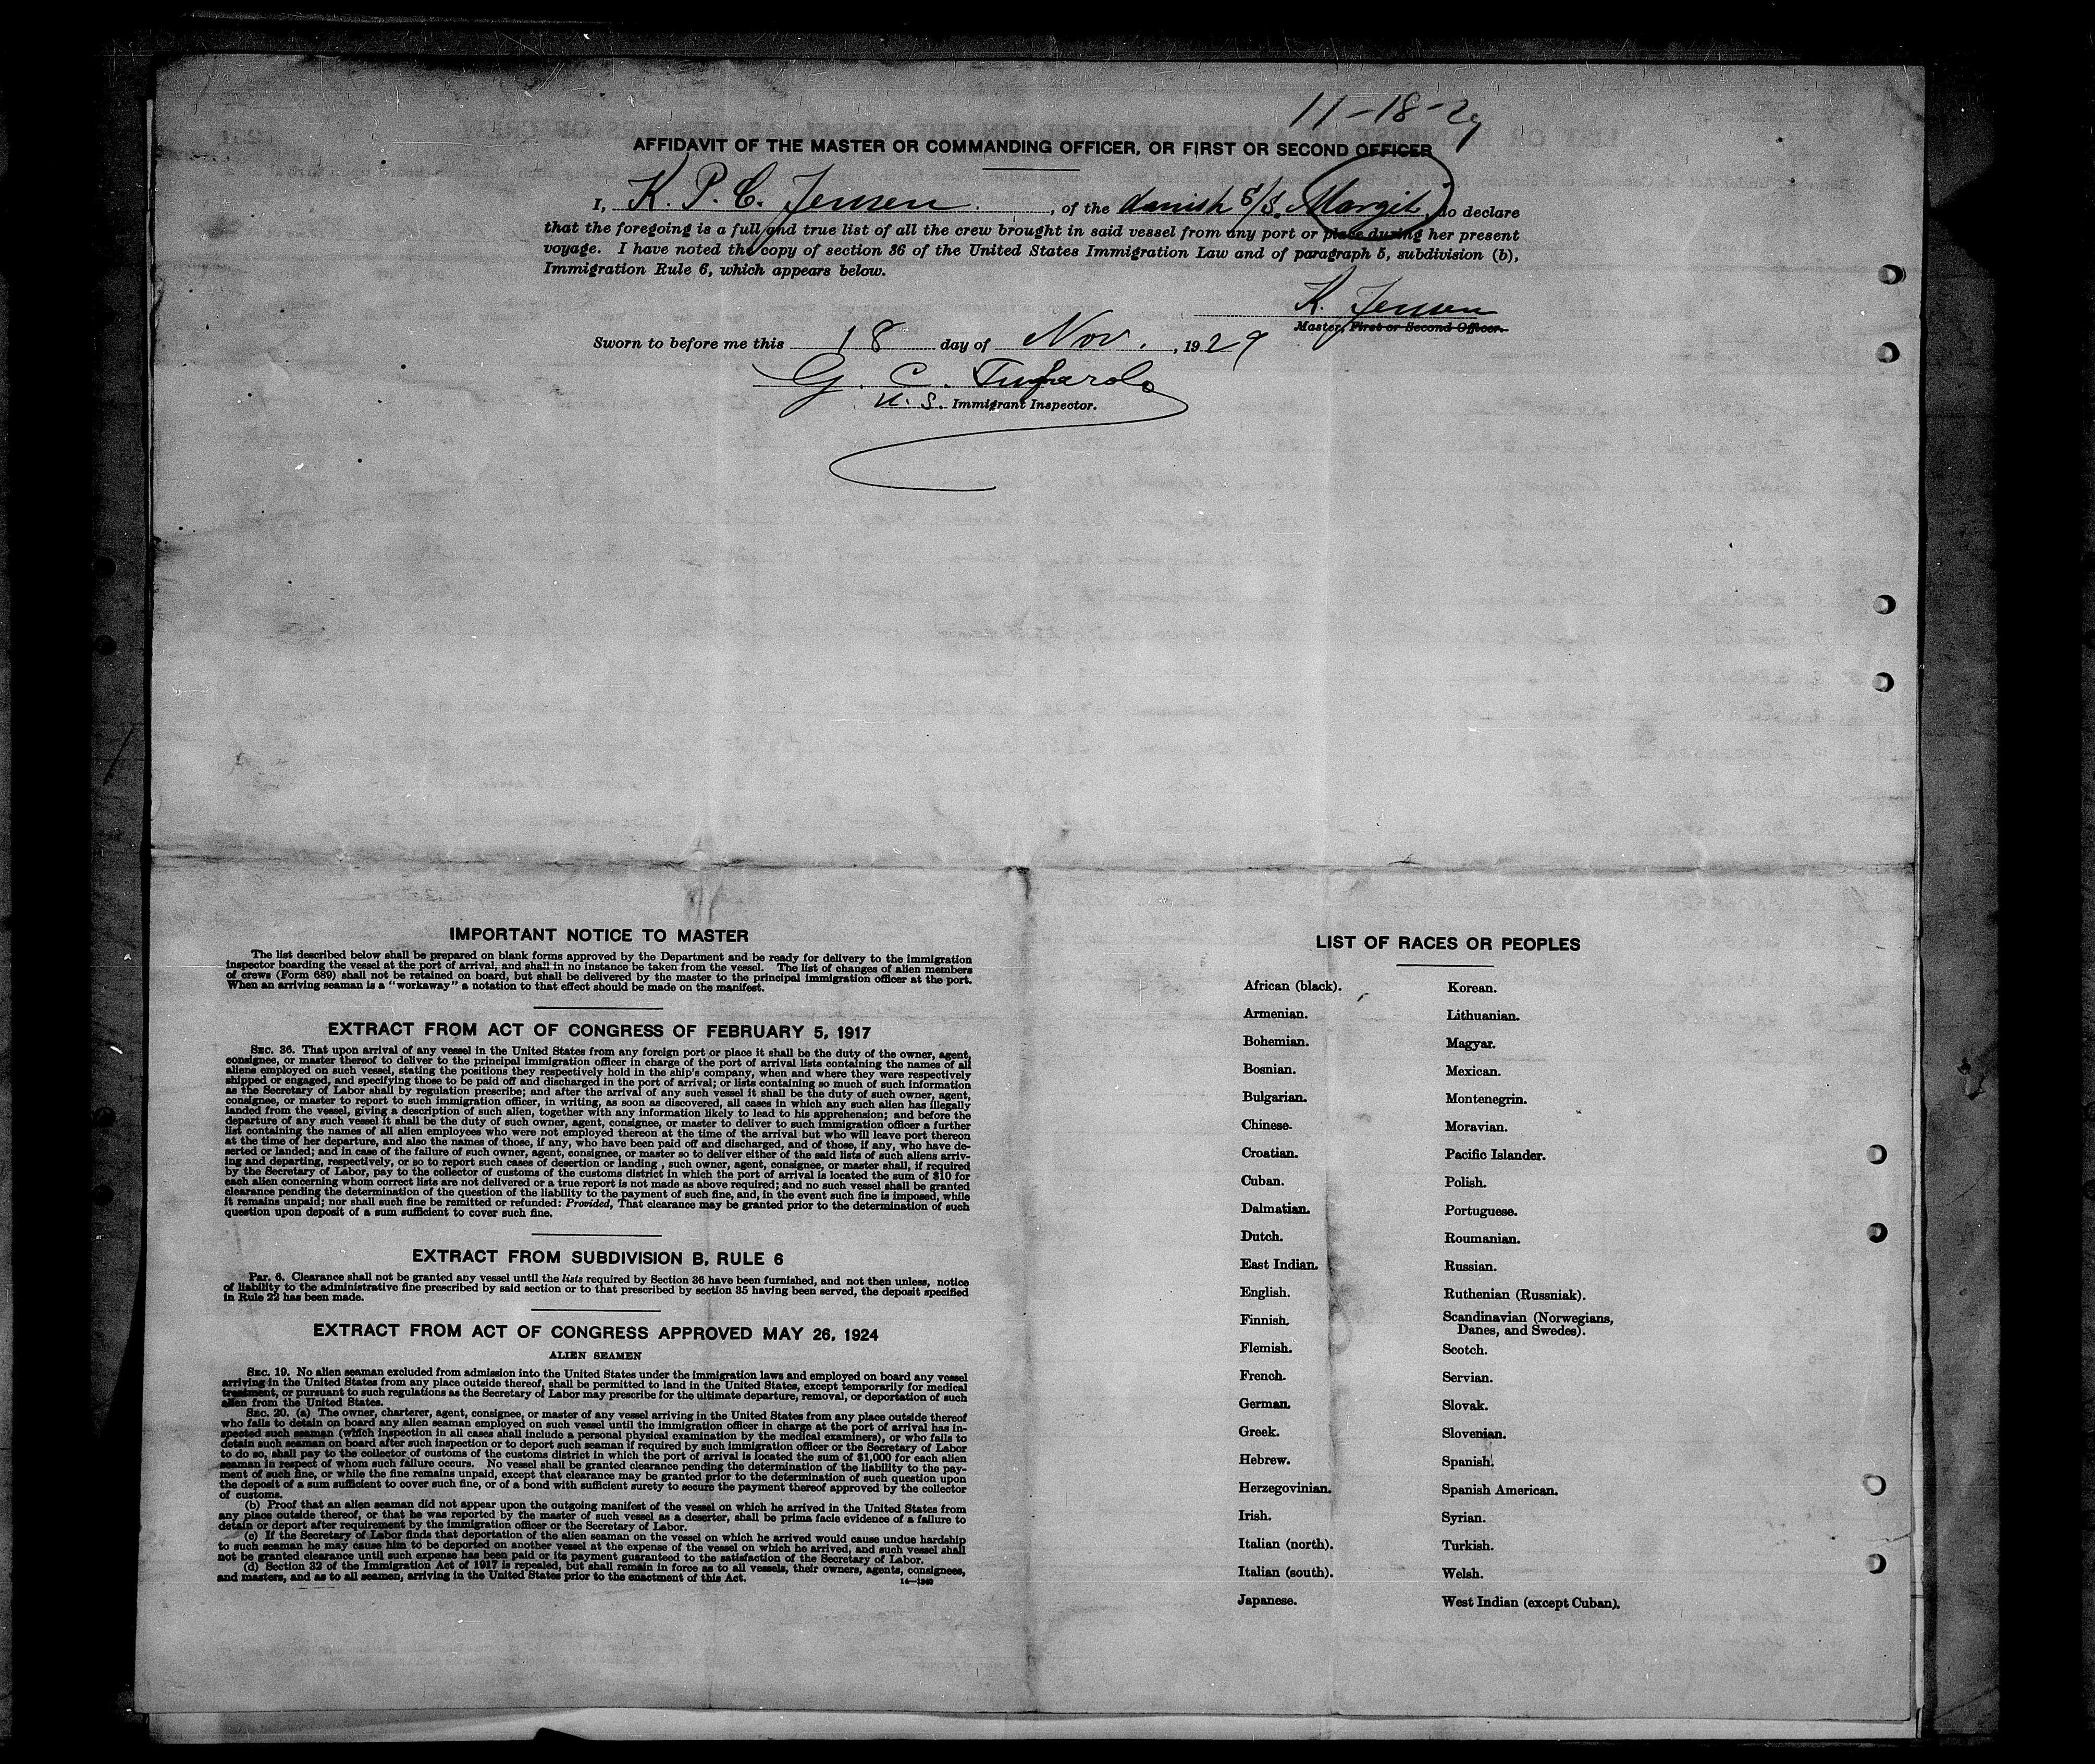 11-18-29
AFFIDAVIT OF THE MASTER OR COMMANDING OFFICER, OR FIRST OR SECOND OFFICER
I, K. P. C. Jensen, of the danish S/S. Margit, do declare
that the foregoing is a full and true list of all the crew brought in said vessel from any port or place during her present
voyage. I have noted the copy of section 36 of the United States Immigration Law and of paragraph 5, subdivision (b),
Immigration Rule 6, which appears below.
K. Jensen
Master, First or Second Officer.
Sworn to before me this 18 day of Nov., 1929
G. C.
U. S. Immigrant Inspector.
IMPORTANT NOTICE TO MASTER
The list described below shall be prepared on blank forms approved by the Department and be ready for delivery to the immigration
inspector boarding the vessel at the port of arrival, and shall in no instance be taken from the vessel. The list of changes of alien members
of crews (Form 689) shall not be retained on board, but shall be delivered by the master to the principal immigration officer at the port.
When an arriving seaman is a "workaway" a notation to that effect should be made on the manifest.
EXTRACT FROM ACT OF CONGRESS OF FEBRUARY 5, 1917
SEC. 36. That upon arrival of any vessel in the United States from any foreign port or place it shall be the duty of the owner, agent,
consignee, or master thereof to deliver to the principal immigration officer in charge of the port of arrival lists containing the names of all
aliens employed on such vessel, stating the positions they respectively hold in the ship's company, when and where they were respectively
shipped or engaged, and specifying those to be paid off and discharged in the port of arrival; or lists containing so much of such information
as the Secretary of Labor shall by regulation prescribe; and after the arrival of any such vessel it shall be the duty of such owner, agent,
consignee, or master to report to such immigration officer, in writing, as soon as discovered, all cases in which any such alien has illegally
landed from the vessel, giving a description of such alien, together with any information likely to lead to his apprehension; and before the
departure of any such vessel it shall be the duty of such owner, agent, consignee, or master to deliver to such immigration officer a further
list containing the names of all alien employees who were not employed thereon at the time of the arrival but who will leave port thereon
at the time of her departure, and also the names of those, if any, who have been paid off and discharged, and of those, if any, who have de-
serted or landed; and in case of the failure of such owner, agent, consignee, or master so to deliver either of the said lists of such aliens arriv-
ing and departing, respectively, or so to report such cases of desertion or landing, such owner, agent, consignee, or master shall, if required
by the Secretary of Labor, pay to the collector of customs of the customs district in which the port of arrival is located the sum of $10 for
each alien concerning whom correct lists are not delivered or a true report is not made as above required; and no such vessel shall be granted
clearance pending the determination of the question of the liability to the payment of such fine, and, in the event such fine is imposed, while
it remains unpaid; nor shall such fine be remitted or refunded: Provided, That clearance may be granted prior to the determination of such
question upon deposit of a sum sufficient to cover such fine.
EXTRACT FROM SUBDIVISION B, RULE 6
Par. 6. Clearance shall not be granted any vessel until the lists required by Section 36 have been furnished, and not then unless, notice
of liability to the administrative fine prescribed by said section or to that prescribed by section 35 having been served, the deposit specified
in Rule 22 has been made.
EXTRACT FROM ACT OF CONGRESS APPROVED MAY 26, 1924
ALIEN SEAMEN
SEC. 19. No alien seaman excluded from admission into the United States under the immigration laws and employed on board any vessel
arriving in the United States from any place outside thereof, shall be permitted to land in the United States, except temporarily for medical
treatment, or pursuant to such regulations as the Secretary of Labor may prescribe for the ultimate departure, removal, or deportation of such
alien from the United States.
SEC. 20. (a) The owner, charterer, agent, consignee, or master of any vessel arriving in the United States from any place outside thereof
who fails to detain on board any alien seaman employed on such vessel until the immigration officer in charge at the port of arrival has in-
spected such seaman (which inspection in all cases shall include a personal physical examination by the medical examiners), or who fails to
detain such seaman on board after such inspection or to deport such seaman if required by such immigration officer or the Secretary of Labor
to do so, shall pay to the collector of customs of the customs district in which the port of arrival is located the sum of $1,000 for each alien
seaman in respect of whom such failure occurs. No vessel shall be granted clearance pending the determination of the liability to the pay-
ment of such fine, or while the fine remains unpaid, except that clearance may be granted prior to the determination of such question upon
the deposit of a sum sufficient to cover such fine, or of a bond with sufficient surety to secure the payment thereof approved by the collector
of customs.
(b) Proof that an alien seaman did not appear upon the outgoing manifest of the vessel on which he arrived in the United States from
any place outside thereof, or that he was reported by the master of such vessel as a deserter, shall be prima facie evidence of a failure to
detain or deport after requirement by the immigration officer or the Secretary of Labor.
(c) If the Secretary of Labor finds that deportation of the alien seaman on the vessel on which he arrived would cause undue hardship
to such seaman he may cause him to be deported on another vessel at the expense of the vessel on which he arrived, and such vessel shall
not be granted clearance until such expense has been paid or its payment guaranteed to the satisfaction of the Secretary of Labor.
(d) Section 32 of the Immigration Act of 1917 is repealed, but shall remain in force as to all vessels, their owners, agents, consignees,
and masters, and as to all seamen, arriving in the United States prior to the enactment of this Act.
LIST OF RACES OR PEOPLES
African (black).
Armenian.
Bohemian.
Bosnian.
Bulgarian.
Chinese.
Croatian.
Cuban.
Dalmatian.
Dutch.
East Indian.
English.
Finnish.
Flemish.
French.
German.
Greek.
Hebrew.
Herzegovinian.
Irish.
Italian (north).
Italian (south).
Japanese.
Korean.
Lithuanian.
Magyar.
Mexican.
Montenegrin.
Moravian.
Pacific Islander.
Polish.
Portuguese.
Roumanian.
Russian.
Ruthenian (Russniak).
Scandinavian (Norwegians,
Danes, and Swedes).
Scotch.
Servian.
Slovak.
Slovenian.
Spanish.
Spanish American.
Syrian.
Turkish.
Welsh.
West Indian (except Cuban).